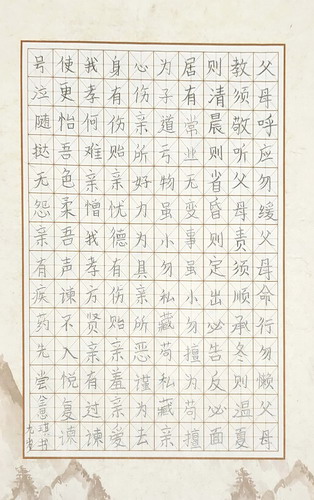 父母呼应勿缓父母命行勿懒父母
教须敬听父母责须顺承冬则温夏
则清晨则省昏则定出必告反必面
居有常业无变事虽小勿擅为苟擅
为子道亏物虽小勿私藏苟私藏亲
心伤亲所好力为具亲所恶谨为去
身有伤贻亲忧德有伤贻亲羞亲爱
我孝何难亲憎我孝方贤亲有过谏
使更怡吾色柔吾声谏不入悦复谏
号泣随挞无怨亲有疾药先尝